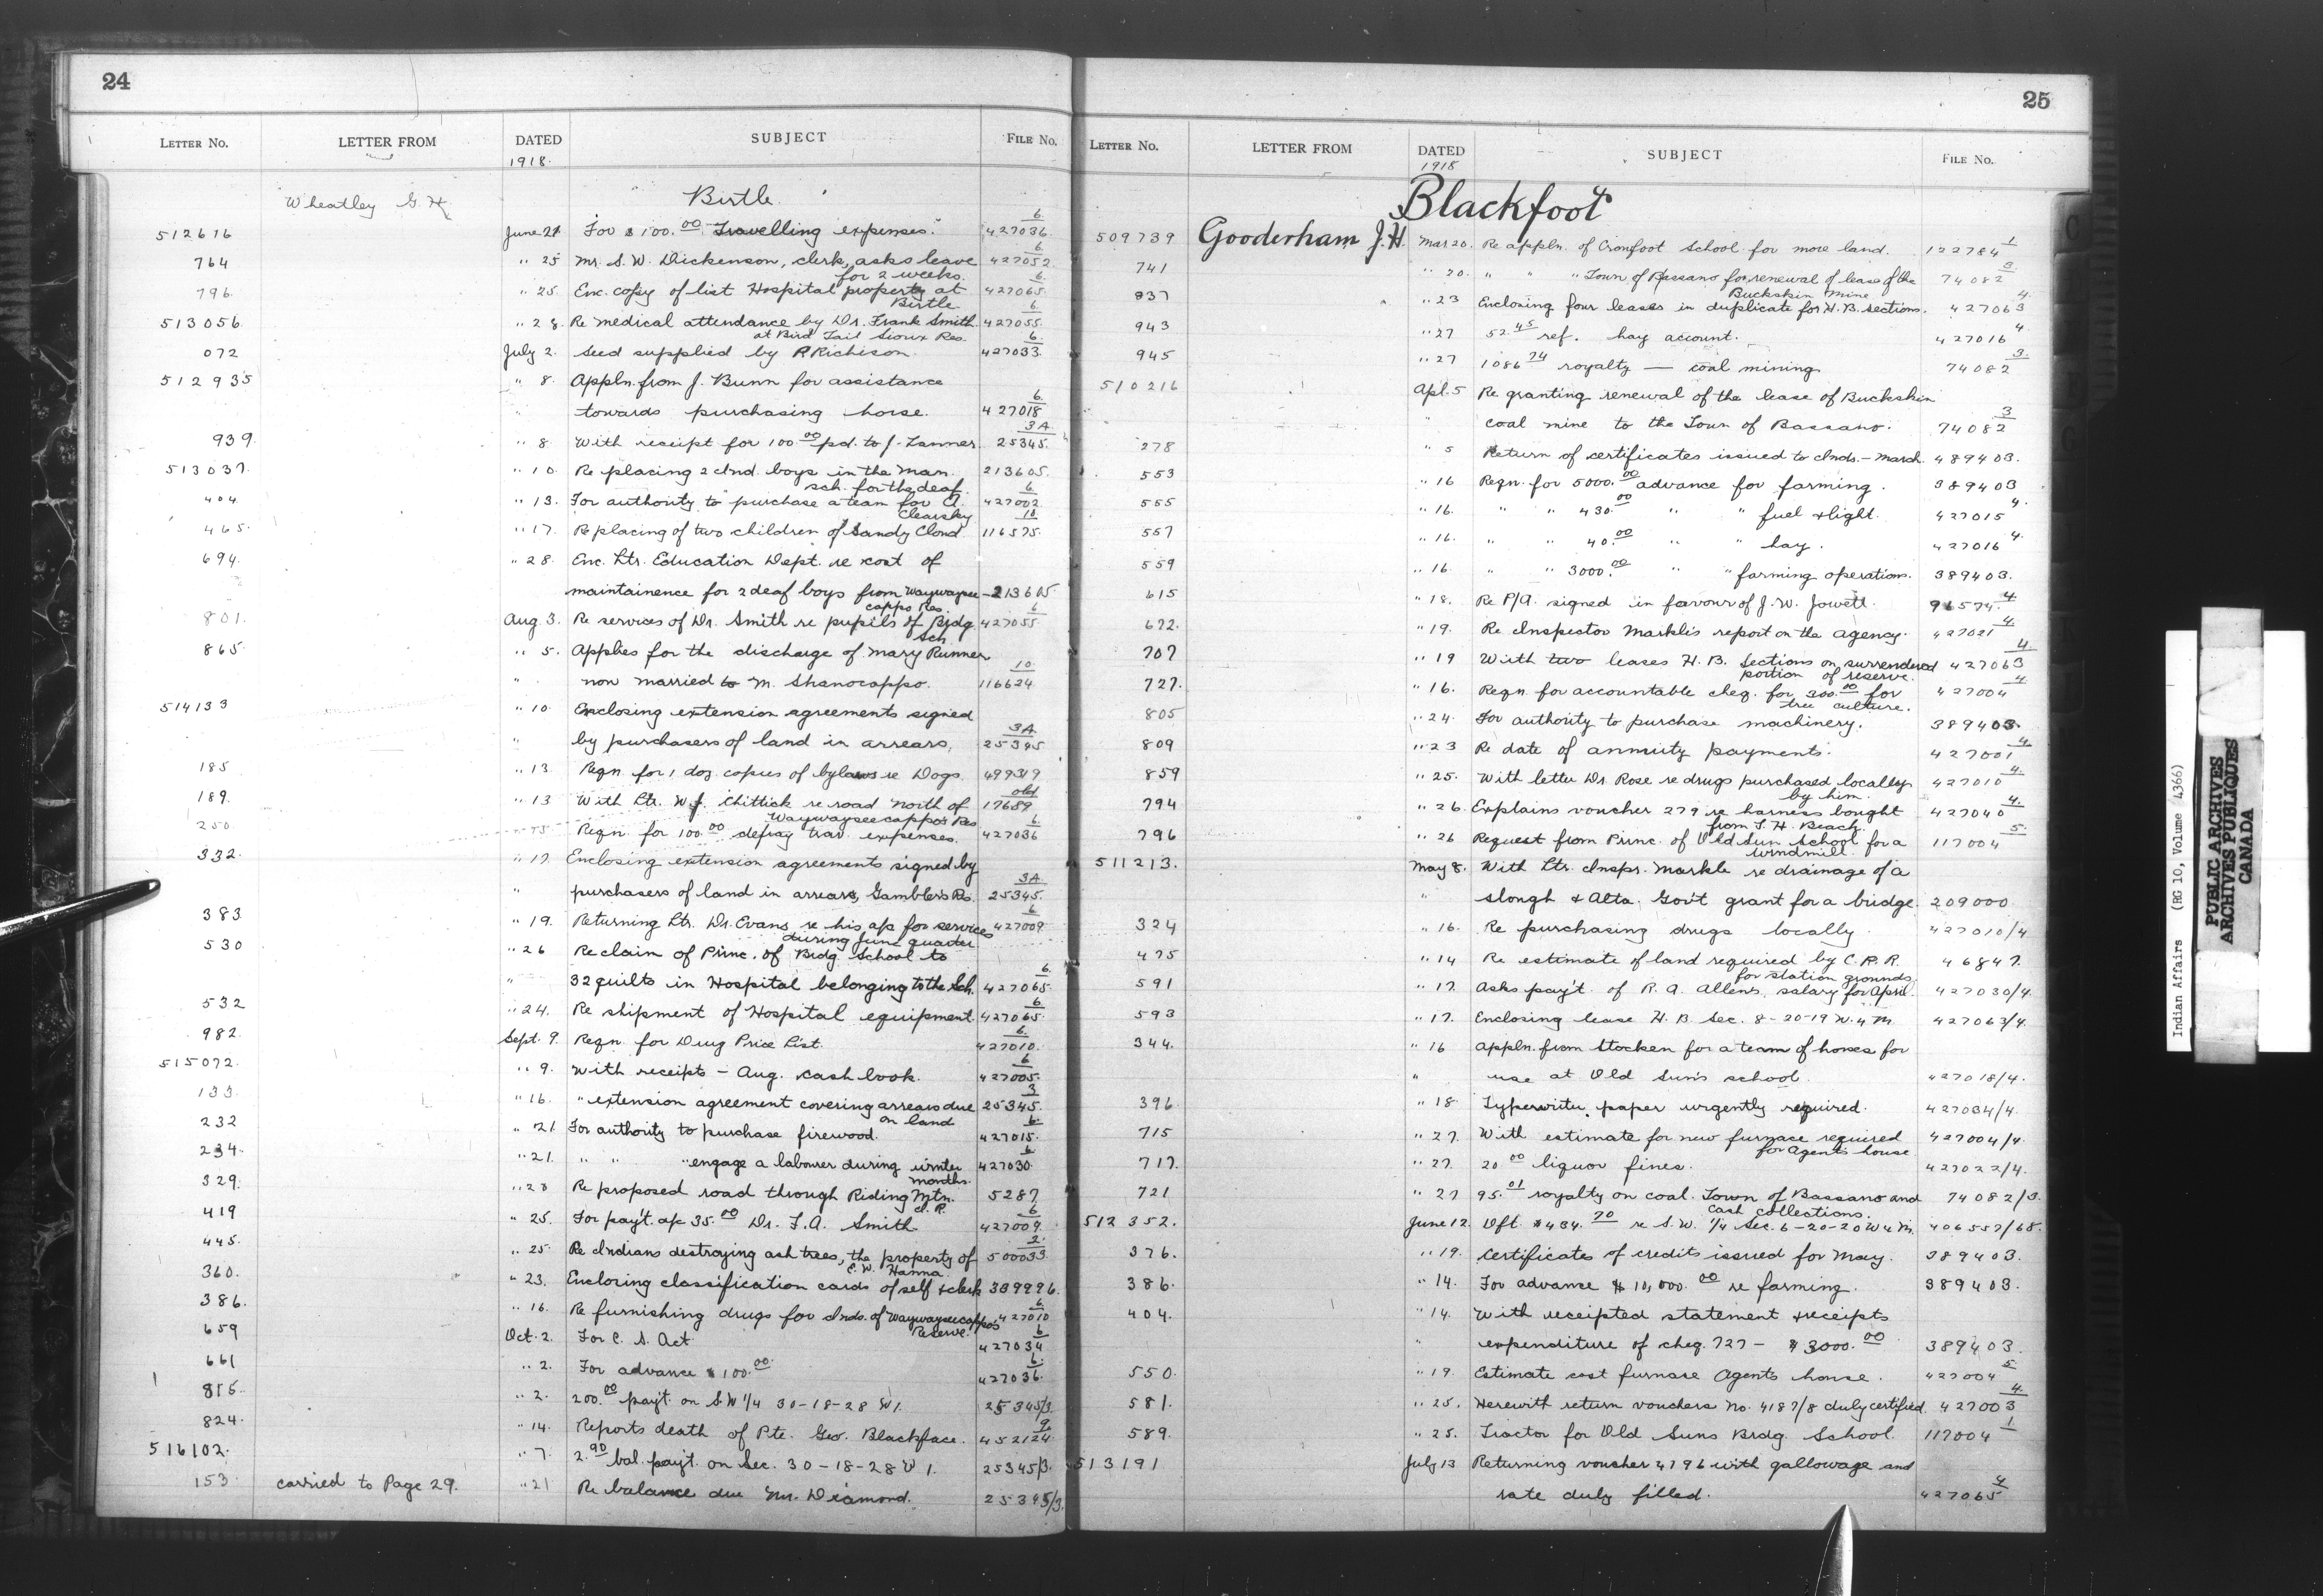 24
LETTER No. LETTER FROM DATED SUBJECT FILE No.
1918.
Wheatley G. H. Birtle.
512616 June 21 For $100.00 Travelling expenses. 427036/6
764 " 25 Mr. S. W. Dickenson, clerk, asks leave 427052/6
for 2 weeks.
796 " 25. Enc. copy of list Hospital property at 427065/6
Birtle
513056. " 28. Re medical attendance by Dr. Frank Smith 427055/6
at Bird Tail Sioux Res.
072 July 2. Seed supplied by P. Richison. 427033/6
512935 " 8. Appln. from J. Bunn for assistance
" towards purchasing horse. 427018/6
939. " 8 With receipt for 100.00 pd. to J. Tanner. 25345/3A
513037. " 10. Re placing 2 Ind. boys in the Man. 213605.
sch. for the deaf.
404 " 13. For authority to purchase a team for A. 427002/6
Clearsky
465. " 17. Re placing of two children of Sandy Cloud 116575/10
694. " 28. Enc. Ltr. Education Dept. re cost of
maintainence for 2 deaf boys from Waywaysee- 213605
cappo Res.
801. Aug. 3. Re services of Dr. Smith re pupils of Brdg. 427055/6
Sch.
865 " 5. Applies for the discharge of Mary Runner
" now married to M. Shanocappo. 116624/10
514133 " 10. Enclosing extension agreements signed
" by purchasers of land in arrears, 25345/3A
185 " 13. Reqn. for 1 doz. copies of bylaws re Dogs. 499319
189. " 13 With Ltr. W. J. Chittick re road North of 17689/old
Waywayseecappo's Res
250 Reqn. for 100.00 defray trav. expenses. 427036/6
332. " 17. Enclosing extension agreements signed by
" purchasers of land in arrears, Gambler's Res. 25345/3A
383 " 19. Returning Ltr. Dr. Evans re his a/c for services 427009/6
during June quarter
530 " 26 Re claim of Princ. of Brdg. School to
" 32 quilts in Hospital belonging to the Sch. 427065/6
532 " 24. Re shipment of Hospital equipment. 427065/6
982. Sept. 9. Reqn. for Drug Price List. 427010/6
515072. " 9. With receipts - Aug. cash book. 427005/6
133. " 16. " extension agreement covering arrears due 25345/3
on land
232 " 21 For authority to purchase firewood. 427015/6
234. " 21. " " " engage a labourer during winter 427030/6
months.
329. " 23 Re proposed road through Riding Mtn. 5287
419 " 25. For pay't. a/c 35.00 Dr. F. A. Smith 427009/6
445. " 25. Re Indians destroying ash trees, the property of 500033/2
E. W. Hanna
360. " 23. Enclosing classification cards of self & clerk 309996.
386. " 16. Re furnishing drugs for Inds. of Waywayseecappo's 427010/6
Reserve.
659 Oct. 2. For C. S. Act 427034/6
661 " 2. For advance $100.00 427036/6
815. " 2. 200.00 pay't. on S.W 1/4 30-18-28 W1. 25345/3.
824. " 14. Reports death of Pte. Geo. Blackface. 452124/9
516102. " 7. 2.90 bal. pay't. on Sec. 30-18-28 W 1. 25345/3.
153. carried to Page 29. " 21 Re balance due Mr. Diamond. 25345/3.
25
LETTER No. LETTER FROM DATED SUBJECT FILE No.
1918
Blackfoot
509739 Gooderham J.H. Mar 20. Re appln. of Crowfoot School for more land. 122784/1
741 " 20. " " " Town of Bassano for renewal of lease of the 74082/3
Buckskin Mine
937 " 23 Enclosing four leases in duplicate for H. B. sections. 427063/4
943 " 27 52.45 ref. hay account. 427016/4
945 " 27 1086.74 royalty — coal mining 74082/3
510216 Apl. 5 Re granting renewal of the lease of Buckskin
" coal mine to the Town of Bassano. 74082/3
278 " 5 Return of certificates issued to Inds. - March. 489403.
553 " 16 Reqn. for 5000.00 advance for farming. 389403
555 " 16. " " 430.00 " " fuel & light. 427015/4
557 " 16. " " 40.00 " " hay. 427016/4
559 " 16. " " 3000.00 " " farming operations. 389403.
615 " 18. Re P/A. signed in favour of J. W. Jowett. 96574/4
672. " 19. Re Inspector Markle's report on the agency. 427021/4
707 " 19 With two leases H. B. Sections on surrendered 427063/4
portion of reserve.
727. " 16. Reqn. for accountable cheq. for 300.00 for 427004/4
tree culture.
805 " 24. For authority to purchase machinery. 389403.
809 " 23 Re date of annuity payments. 427001/4
859 " 25. With letter Dr. Rose re drugs purchased locally 427010/4
by him.
794 " 26. Explains voucher 279 re harness bought 427040/4
from T. H. Beach.
796 " 26 Request from Princ. of Old Sun School for a 117004/5
windmill.
511213. May 8. With Ltr. Inspr. Markle re drainage of a
" slough & Alta. Gov't grant for a bridge. 209000
324 " 16. Re purchasing drugs locally. 427010/4
475 " 14 Re estimate of land required by C. P. R. 46847.
for station grounds
591 " 17. Asks pay't. of R. A. Allen's salary for April. 427030/4.
593 " 17. Enclosing lease H. B. Sec. 8-20-19 W. 4 M 427063/4.
344. " 16 Appln. from Stocken for a team of horses for
" use at Old Sun's school. 427018/4.
396 " 18 Typewriter paper urgently required. 427034/4.
715 " 27. With estimate for new furnace required 427004/4
for Agent's house
717. " 27. 20.00 liquor fines. 427022/4.
721 " 27 95.01 royalty on coal. Town of Bassano and 74082/3.
Cash collections.
512352. June 12. Dft. $434.70 re S.W. 1/4 Sec. 6-20-20 W 4 M. 406557/68.
376. " 19. Certificates of credits issued for May. 389403.
386. " 14. For advance $10,000.00 re farming. 389403.
404. " 14. With receipted statement & receipts
" expenditure of cheq. 727 - $3000.00 389403.
550. " 19. Estimate cost furnace Agents house. 427004/5
581. " 25. Herewith return vouchers No. 4187/8 duly certified. 427003/4
589. " 25. Tractor for Old Suns Brdg. School. 117004/1
513191 July 13 Returning voucher 4796 with gallowage and
rate duly filled. 427065/4
Indian Affairs (RG 10, Volume 4366)
PUBLIC ARCHIVES
ARCHIVES PUBLIQUES
CANADA